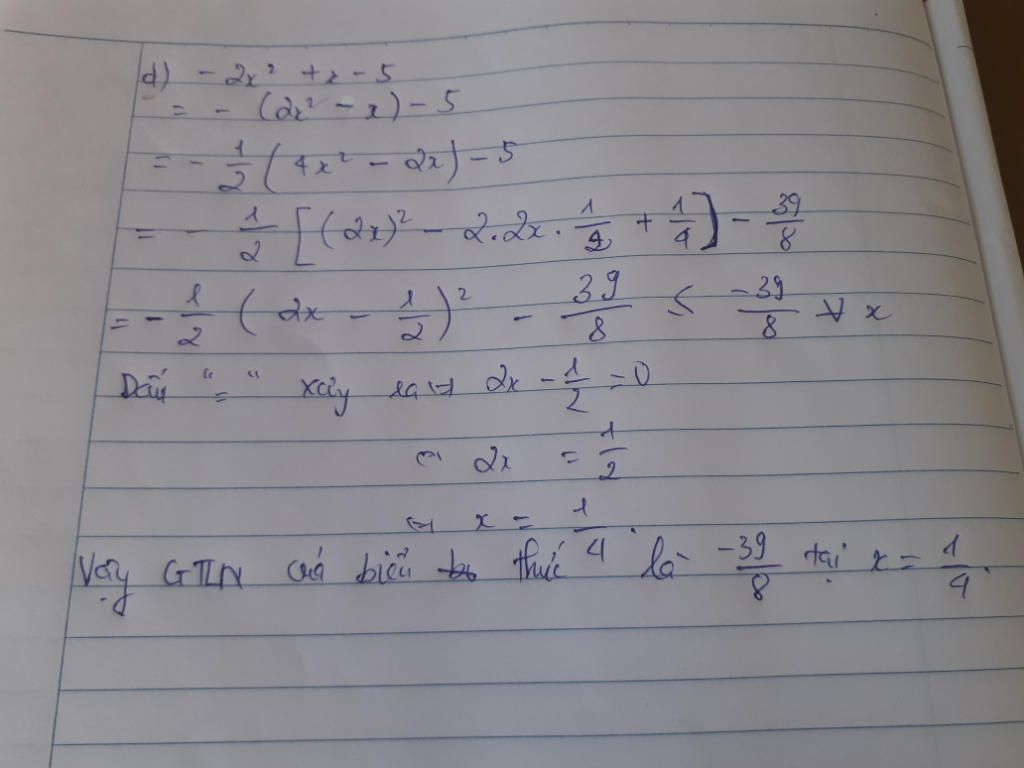 d) - 2x² + x - 5
= - (2x² - x) - 5
= - 1/2 ( 4x² - 2x) - 5
= - 1/2 [ (2x)² - 2.2x . 1/2 + 1/4 ] - 39/8
= - 1/2 ( 2x - 1/2 )² - 39/8 ≤ -39/8 ∀ x
Dấu "=" xảy ra ⇔ 2x - 1/2 = 0
⇔ 2x = 1/2
⇔ x = 1/4 .
Vậy GTLN của biểu thức là -39/8 tại x = 1/4 .